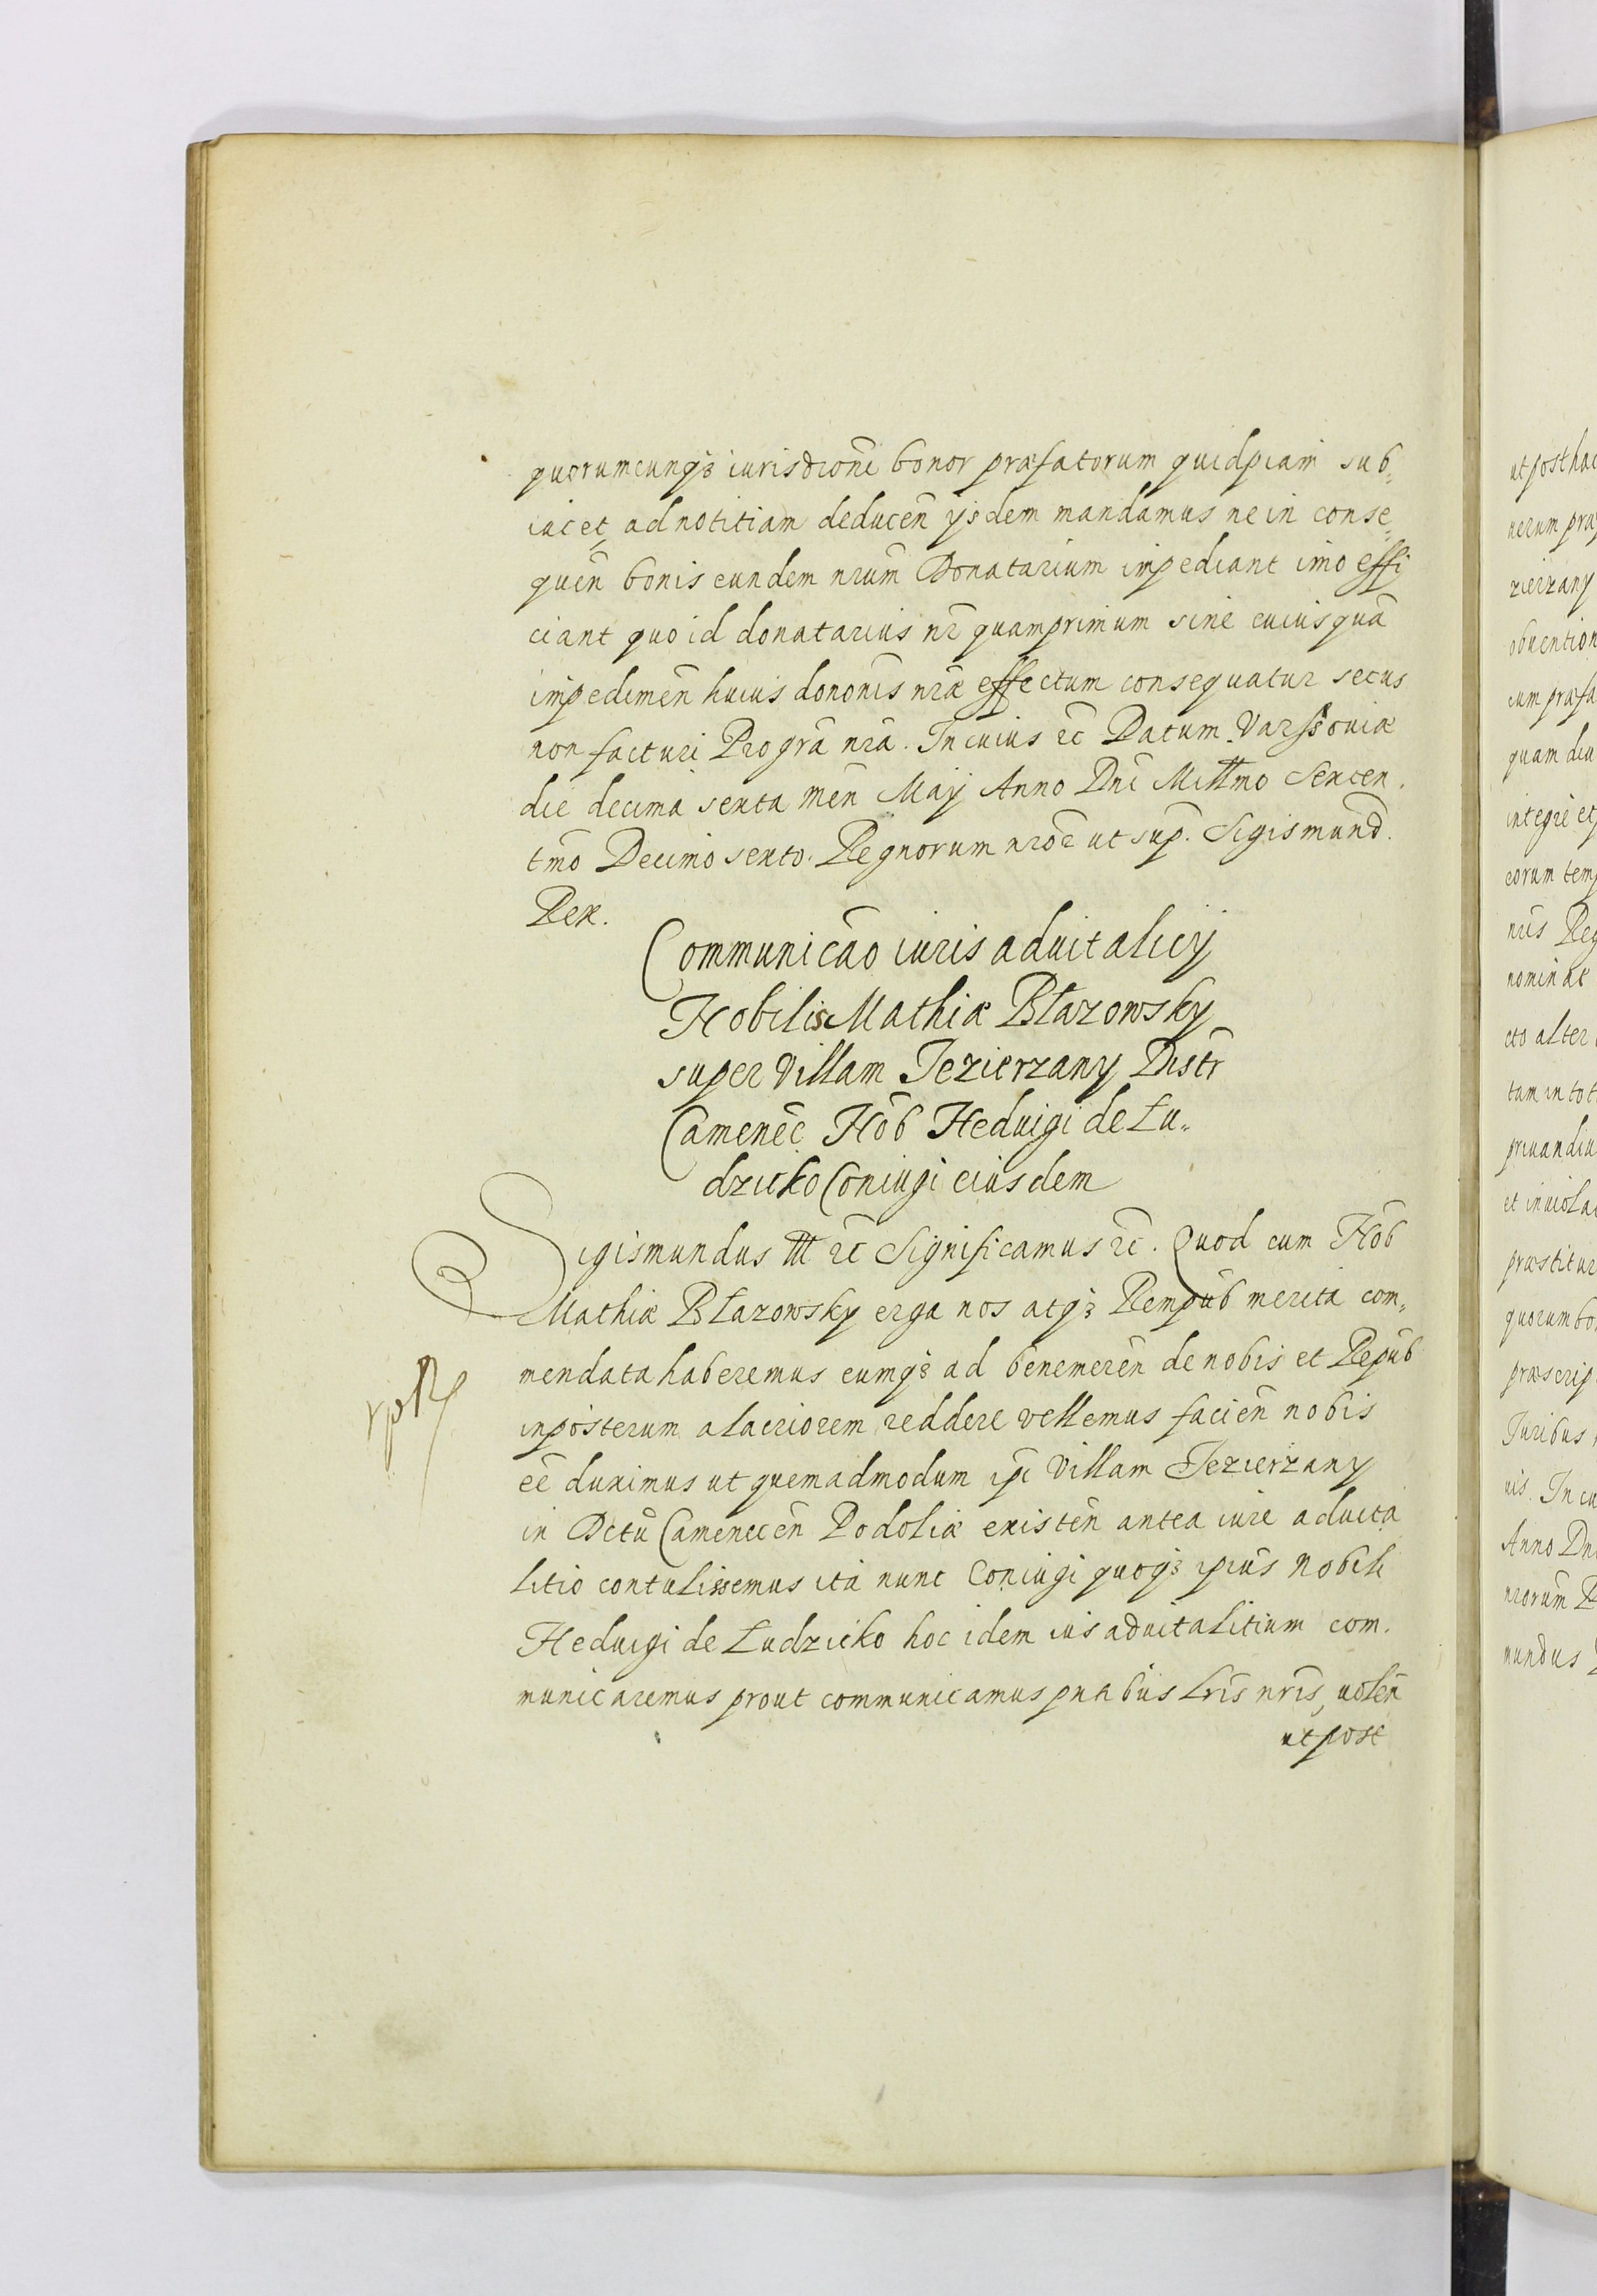 quorumcunq₃ iurisdicōni bonor præfatorum quidpiam sub„
iacet, ad notitiam deducen̄ ysdem mandamus ne in conse„
quen̄ bonis eundem nrūm Donatarium impediant imo effi
ciant quo id donatarius nr̄ quamprimum sine cuiusquā
impedimen̄ huius dononīs nrǣ effectum consequatur secus
non facturi Pro grā nrā. In cuius rc̄ Datum Varssouiæ
die decima sexta men̄ Maÿ Anno Dnī Millmō Sexcen.
tmō Decimo sexto. Regnorum nrōr ut sup. Sigismund̄.
Rex.
Communicāo iuris aduitalicÿ
Nobilis Mathiæ Błazowsky
super Villam Jezierzany Distr̄
Camenēc Nōb Heduigi de Łu„
dzicko Coniugi eiusdem
Sigismundus III rc̄ Significamus rc̄. Quod cum Nōb
Mathiæ Błazowsky erga nos atq₃ Rempūb merita com„
mendata haberemus eumq₃ ad benemeren̄ de nobis et Repūb
inposterum alacriorem reddere vellemus facien̄ nobis
eē duximus ut quemadmodum ipī Villam Jezierzany
in Dctū Camenecen̄ Podoliæ existen̄ antea iure aduita
litio contulissemus ita nunc Coniugi quoq₃ ipiūs Nobili
Heduigi de Łudzicko hoc idem ius aduitalitium com.
municaremus prout communicamus pntībus Lrīs nrīs, uolen̄
ut post
ut posthac
nerum præ
zierzany
obuention
cum præfa
quam diu
integre et
eorum temp
nrīs Reg
nominat
cto alter
tam in tot
priuandiu
et inuiola
præstitur
quorum bo
præscrip
Juribus
uis. In cu
Anno Dn
nrorūm R
mundus